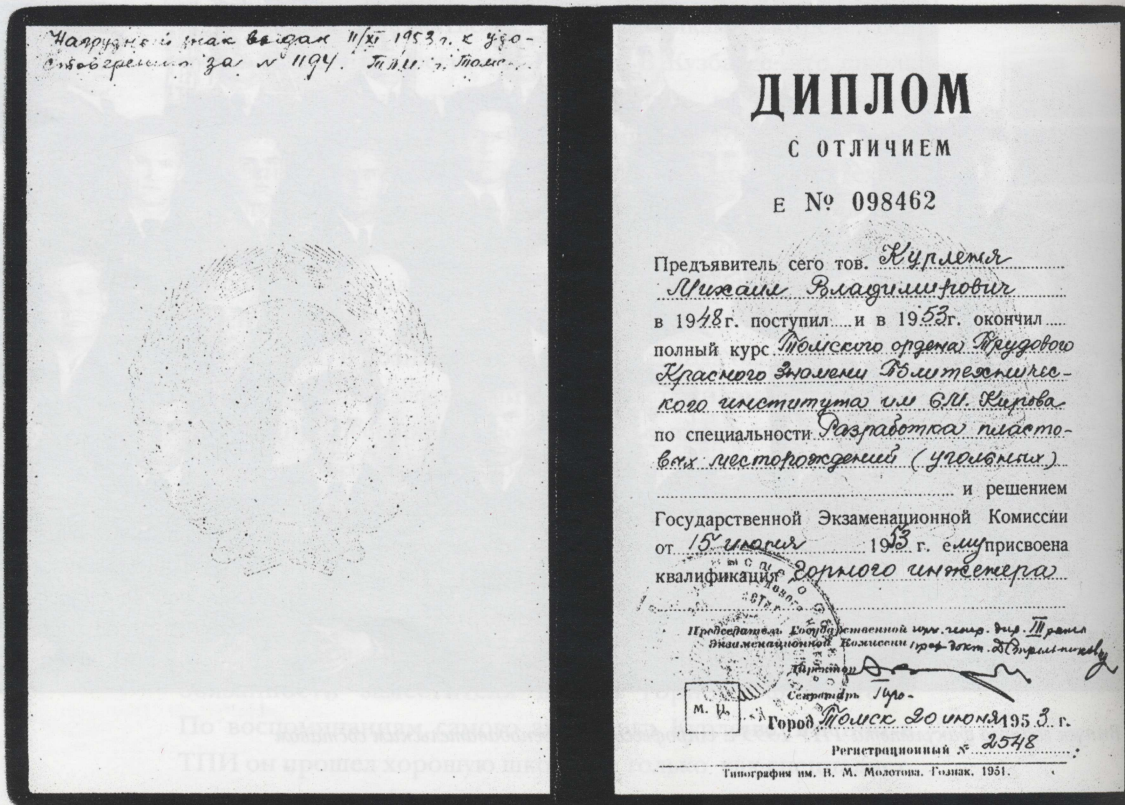 Нагрудной знак выдан 11/XI 1953 г. к удо-
стоверению за № 1194. ТПИ г. Томс
ДИПЛОМ
С ОТЛИЧИЕМ
Е № 098462
Предъявитель сего тов. Курленя
Михаил Владимирович
в 1948 г. поступил и в 1953 г. окончил
полный курс Томского ордена Трудового
Красного Знамени Политехничес-
кого института им С.М. Кирова
по специальности Разработка пласто-
вых месторождений (угольных)
и решением
Государственной Экзаменационной Комиссии
от 15 июня 1953 г. ему присвоена
квалификация Горного инженера
Председатель Государственной
Экзаменационной Комиссии
Директор
Секретарь
М. П.
Город Томск 20 июня 1953. г.
Регистрационный № 2548
Типография им. В. М. Молотова. Гознак. 1951.
По воспоминаниям самого
ТПИ он прошел хорошую только